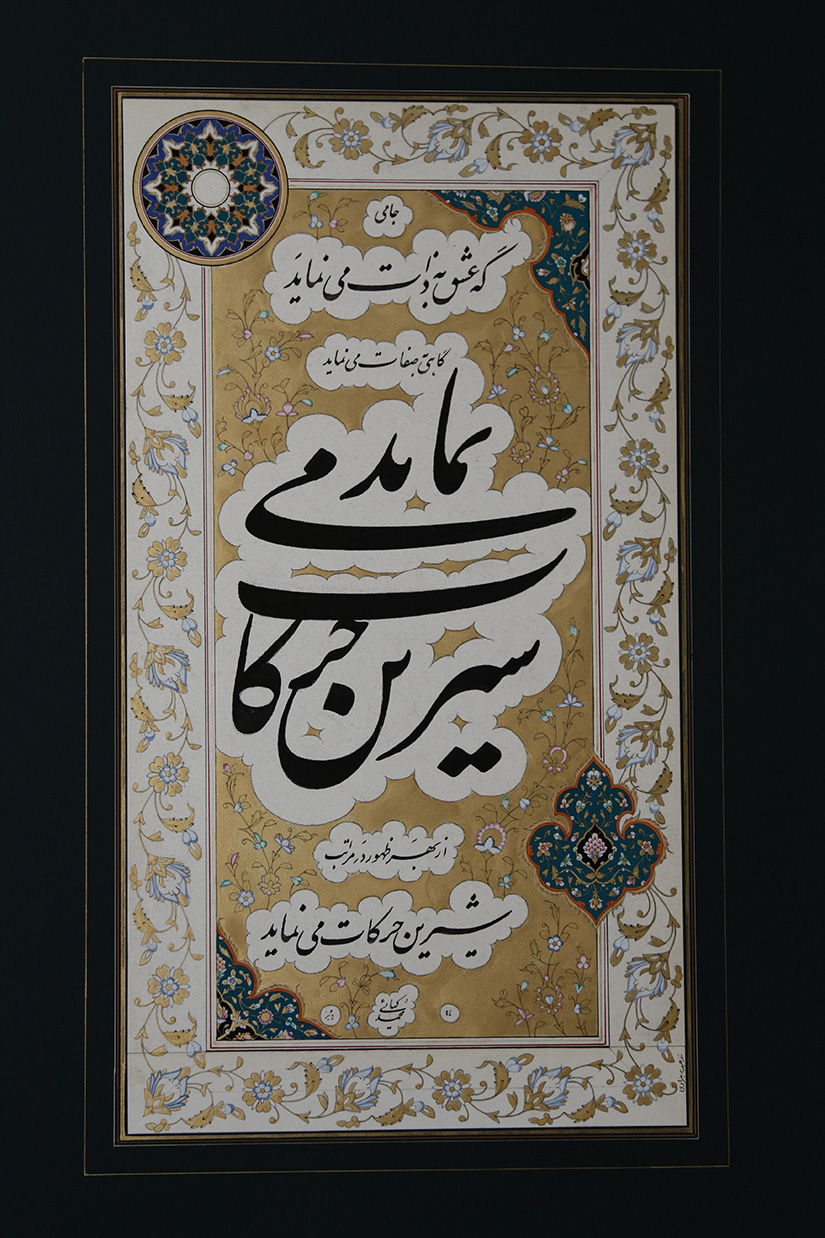 جامی
گه عشق به ذات می نماید
گاهی به صفات می نماید
می نماید
شیرین حرکات
از بهر ظهور در مراتب
شیرین حرکات می نماید
۹۴